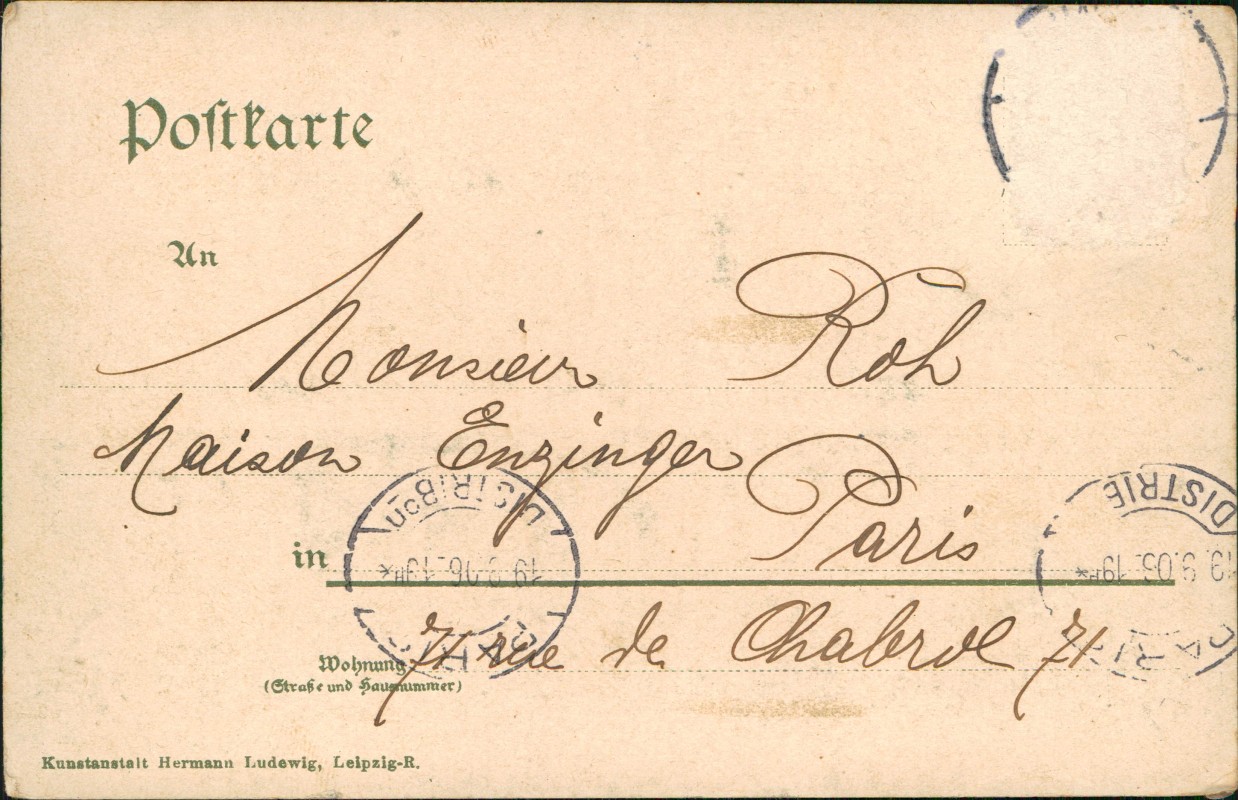 Postkarte
An
Monsieur Roh
Maison Enzinger
in Paris
Wohnung 71 rue de Chabrol 71
(Straße und Hausnummer)
DISTRIBon
19.9.06.19H*
DISTRIB
19 9.06.19H*
PARIS
Kunstanstalt Hermann Ludewig, Leipzig-R.